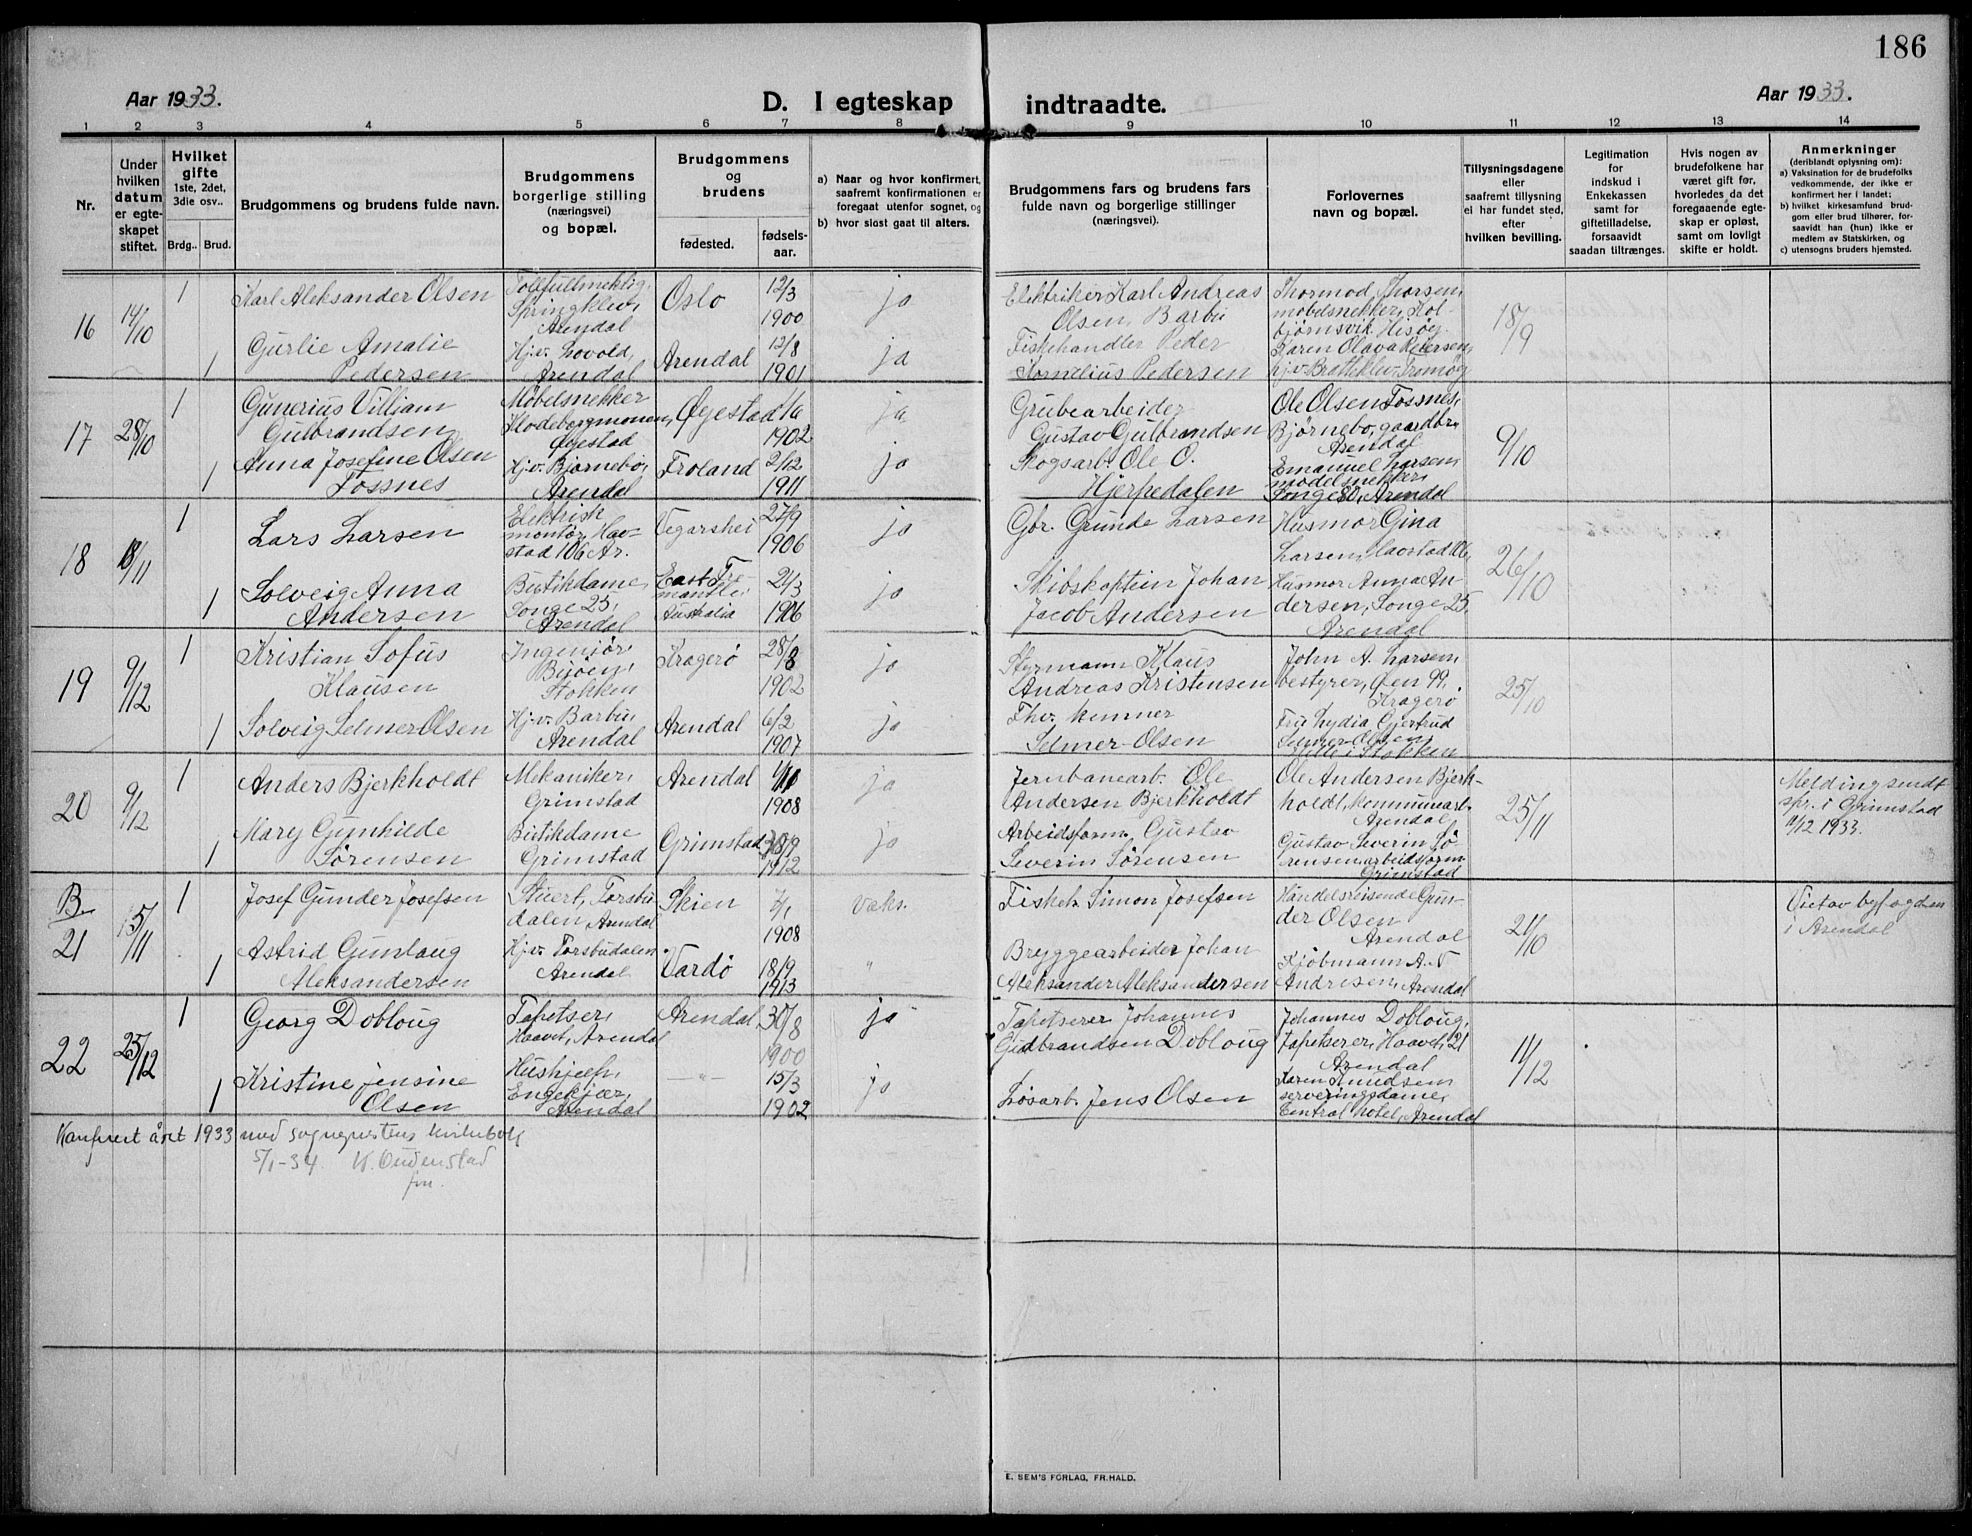 186
Aar 1933.
D. I egteskap indtraadte.
Aar 1933.
1 2 3 4 5 6 7 8 9 10 11 12 13 14
Nr.
Under hvilken datum er egteskapet stiftet.
Hvilket gifte 1ste, 2det, 3die osv..
Brdg.. Brud.
Brudgommens og brudens fulde navn.
Brudgommens borgerlige stilling (næringsvei) og bopæl.
Brudgommens og brudens
fødested.
fødselsaar.
a) Naar og hvor konfirmert, saafremt konfirmationen er foregaat utenfor sognet, og
b) hvor sidst gaat til alters.
Brudgommens fars og brudens fars fulde navn og borgerlige stillinger (næringsvei).
Forlovernes navn og bopæl.
Tillysningsdagene eller saafremt tillysning ei har fundet sted, efter hvilken bevilling.
Legitimation for indskud i Enkekassen samt for giftetilladelse, forsaavidt saadan tiltrænges.
Hvis nogen av brudefolkene har været gift før, hvorledes da det foregaaende egteskap er opløst, samt om lovligt skifte er holdt.
Anmerkninger (deriblandt oplysning om):
a) Vaksination for de brudefolks vedkommende, der ikke er konfirmert her i landet;
b) hvilket kirkesamfund brudgom eller brud tilhører, forsaavidt han (hun) ikke er medlem av Statskirken, og
c) utensogns bruders hjemsted.
16 14/10 1 Karl Aleksander Olsen
Springklev, Arendal
Oslo 12/3 1900 ja
Elektriker Karl Andreas Olsen, Barbu
Thormod Thorsen, møbelsnekker, Kolbjørnsvik, Hisøy.
18/9
1 Gurlie Amalie Pedersen
Hj.v. Lovold, Arendal
Arendal 12/8 1901 ja
Fiskehandler Peder Kornelius Pedersen
Karen Olava Pedersen, hj.v. Bratteklev, Tromøy
17 28/10 1 Gunerius Villiam Gulbrandsen
Møbelsnekker Klodeborgmonen, Øyestad
Øyestad 1902 ja
Grubearbeider Gustav Gulbrandsen
Ole Olsen Fossnes, Bjørnebo, gaardbr. Arendal
9/10
1 Anna Josefine Olsen Fossnes
Hj.v. Bjørnebo, Arendal
Froland 2/12 1911 ja
Skogsarb. Ole O. Hjerpedalen
Emanuel Larsen, modelsnekker, Songe 80, Arendal
18 18/11 1 Lars Larsen
Elektrisk montør, Havstad 106 Ar.
Vegarshei 27/9 1906 ja
Gbr. Grunde Larsen
Husmor Gina Larsen, Havstad 106,
26/10
1 Solveig Anna Andersen
Butikdame, Songe 25, Arendal
East Fremantle, Australia 21/3 1906 ja
Skibskaptein Johan Jacob Andersen
Husmor Anna Andersen, Songe 25, Arendal
19 9/12 1 Kristian Sofus Klausen
Ingeniør, Bijøen, Stokken
Kragerø 28/8 1902 ja
Styrmann Klaus Andreas Kristensen
John A. Larsen, bestyrer, Øen 99, Kragerø
25/10
1 Solveig Selmer Olsen
Hj.v. Barbu, Arendal
Arendal 6/2 1907 ja
Fhv. kemner Selmer-Olsen
Fru Lydia Gjertrud Selmer-Olsen, Stokken
20 9/12 1 Anders Bjerkholdt
Mekaniker, Grimstad
Arendal 1908 ja
Jernbanearb. Ole Andersen Bjerkholdt
Ole Andersen Bjerkholdt, kommunearb. Arendal
25/11
Melding sendt spr. i Grimstad 9/12 1933.
1 Mary Gunhilde Sørensen
Butikdame Grimstad
Grimstad 30/9 1912 ja
Arbeidsform. Gustav Severin Sørensen
Gustav Severin Sørensen, arbeidsform. Grimstad
B. 21 15/11 1 Josef Gunder Josefsen
Stuert, Torsbudalen, Arendal
Skien 7/1 1908 Vaks.
Fiskeh. Simon Josefsen
Handelsreisende Gunder Olsen Arendal
21/10
Viet av byfogden i Arendal
1 Astrid Gunlaug Aleksandersen
Hj.v. Torsbudalen, Arendal
Vardø 18/9 1913 "
Bryggearbeider Johan Aleksander Aleksandersen
Kjøbmann A. N Andresen, Arendal
22 25/12 1 Georg Dobloug
Tapetser, Haavet, Arendal
Arendal 30/8 1900 ja
Tapetserer Johannes Gudbrandsen Dobloug
Johannes Dobloug, tapetserer, Haavet, 21 Arendal
11/12
1 Kristine Jensine Olsen
Hushjelp, Engekjær, Arendal
— " — 15/3 1902 ja
Løsarb. Jens Olsen
Karen Knudsen serveringsdame, Central hotel, Arendal
Konferert året 1933 med sogneprestens kirkebok
5/1-34.
E. SEM'S FORLAG, FR.HALD.